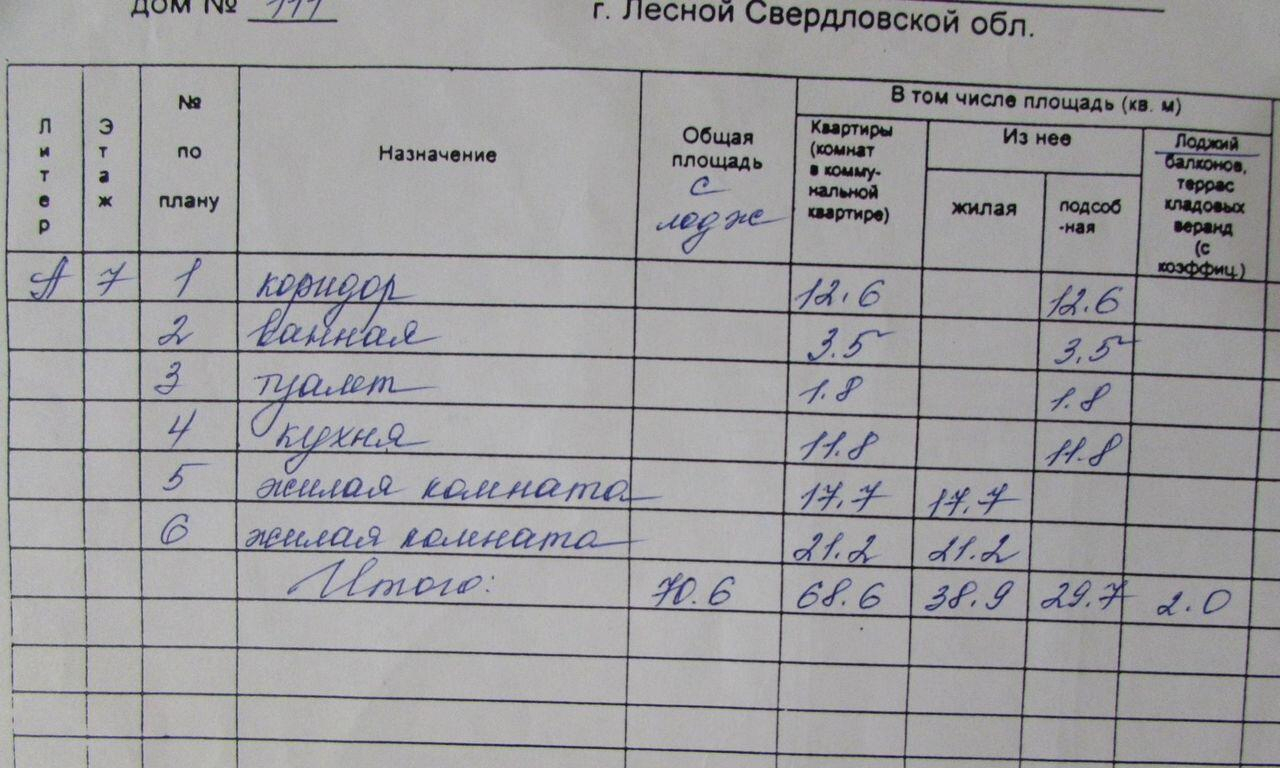 дом № 111
г. Лесной Свердловской обл.
Литер
Этаж
№ по плану
Назначение
Общая площадь с лодж
В том числе площадь (кв. м)
Квартиры (комнат в комму-нальной квартире)
Из нее
жилая
подсоб-ная
Лоджий балконов, террас кладовых веранд (с коэффиц.)
А 7 1 коридор 12.6 12.6
2 ванная 3.5 3.5
3 туалет 1.8 1.8
4 кухня 11.8 11.8
5 жилая комната 17.7 17.7
6 жилая комната 21.2 21.2
Итого: 70.6 68.6 38.9 29.7 2.0